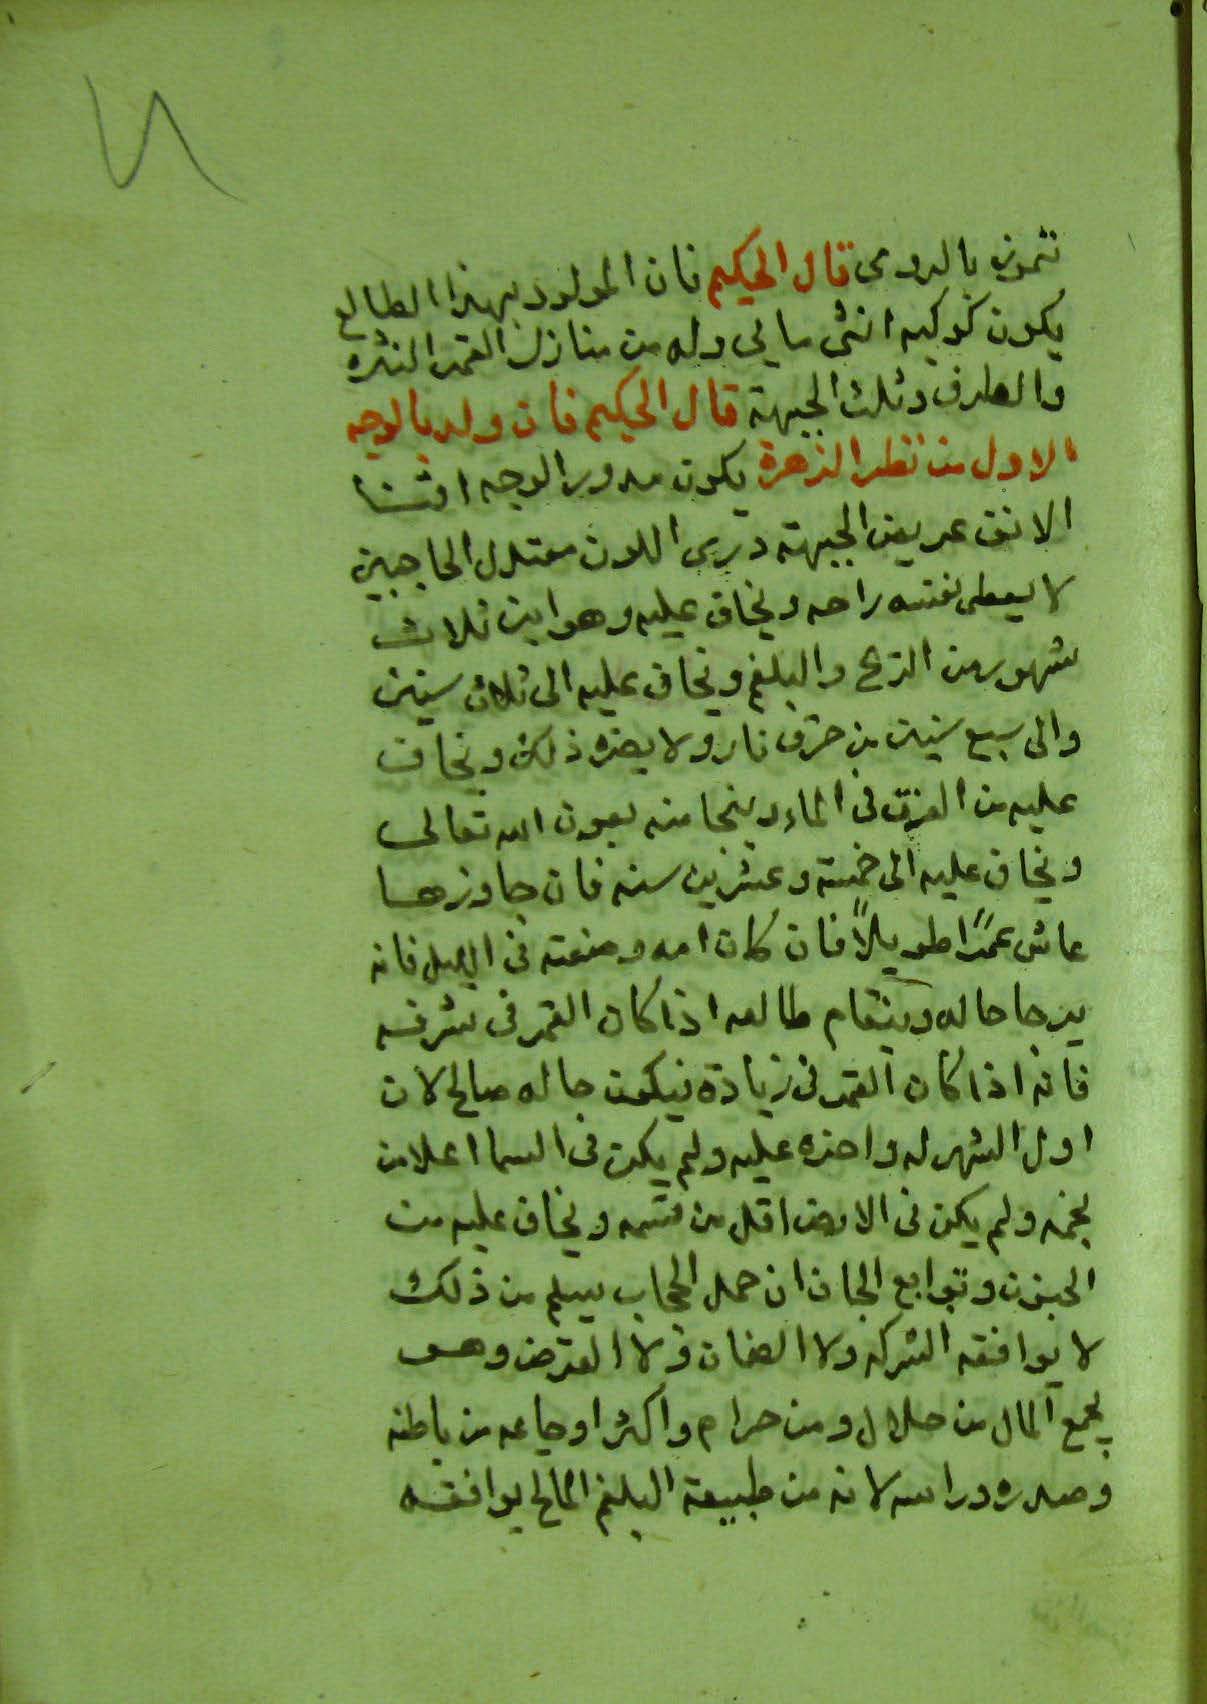 ٧٨
تموز بالرومى قال الحكيم فان المولود بهذا الطالع
يكون كوكبه انثى مايى وله من منازل القمر النثره
والطرف وثلث الجبهة قال الحكيم فان ولد بالوجه
الاول من نظر الزهرة يكون مدور الوجه اقنا
الانف عريض الجبهته درى اللون معتدل الحاجبين
لا يعطى نفسه راحه ويخاف عليه وهو ابن ثلاث
شهور من الريح والبلغم ويخاف عليه الى ثلاث سنين
والى سبع سنين من حرق نار ولا يضره ذلك ويخاف
عليه من الغرق فى الماء وينجا منه بعون الله تعالى
ويخاف عليه الى خمسة وعشرين سنه فان جاوزها
عاش عمرًا طويلاً فان كان امه وضعته فى الليل فانه
يرجا حاله طالعه اذا كان القمر فى شرفه
فانه اذا كان القمر فى زيادة فيكون حاله صالح لان
اول الشهر له واخره عليه ولم يكن فى السما اعلا من
نجمه ولم يكن فى الارض اقل من قسمه ويخاف عليه من
الجنون وتوابع الجان ان حمل الحجاب يسلم من ذلك
لا يوافقه الشركه ولا الضمان ولا القرض وهو
يجمع المال من حلال ومن حرام واكثر اوجاعه من باطنه
وصدره وراسه لانه من طبيعة البلغم المالح يوافقه